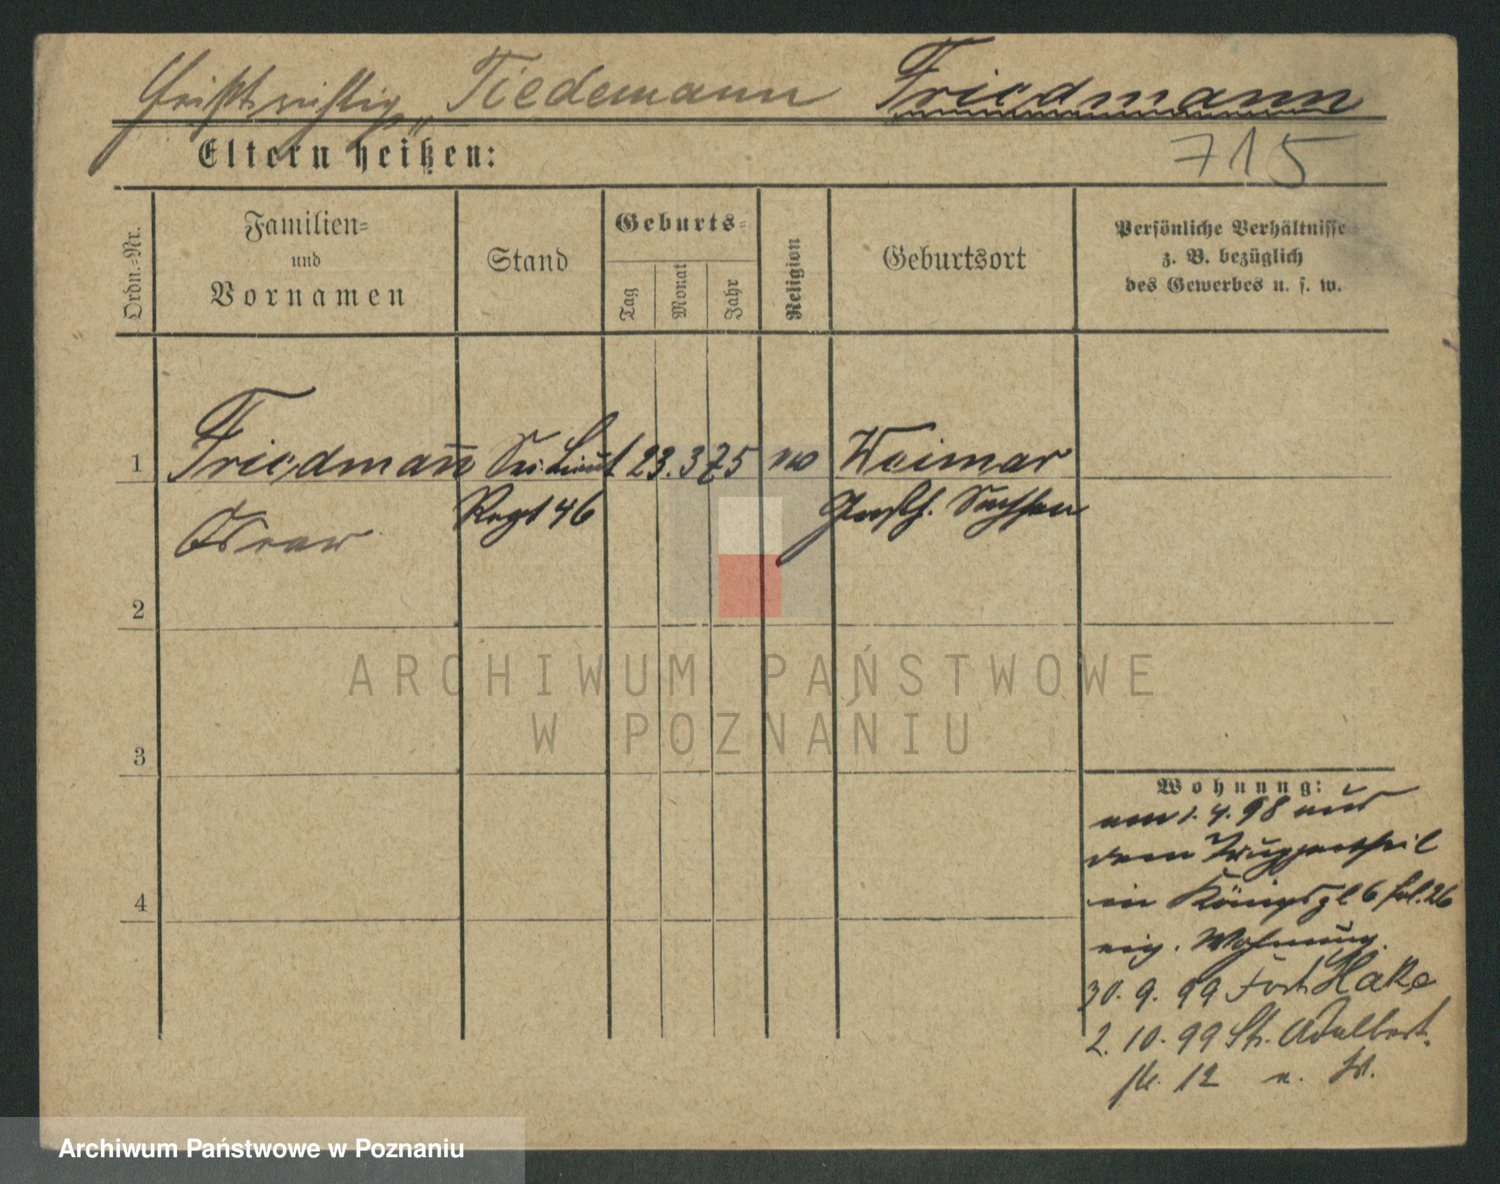 Tiedemann Friedmann
Eltern heißen:
715
Ordn.-Nr.
Familien-
und
Vornamen
Stand
Geburts-
Tag
Monat
Jahr
Religion
Geburtsort
Persönliche Verhältnisse
z. B. bezüglich
des Gewerbes u. s. w.
1 Friedmann Sec. Lieut 23. 3 75 Weimar
Regt 46 Großh. Sachsen
Oscar
2
3
4
ARCHIWUM PAŃSTWOWE
W POZNANIU
Wohnung:
am 1. 4. 98 aus
dem Truppentheil
in Königspl 6 fol. 26
eig. Wohnung.
30. 9. 99 Fort Hake
2. 10. 99 St. Adalbert-
str. 12
Archiwum Państwowe w Poznaniu